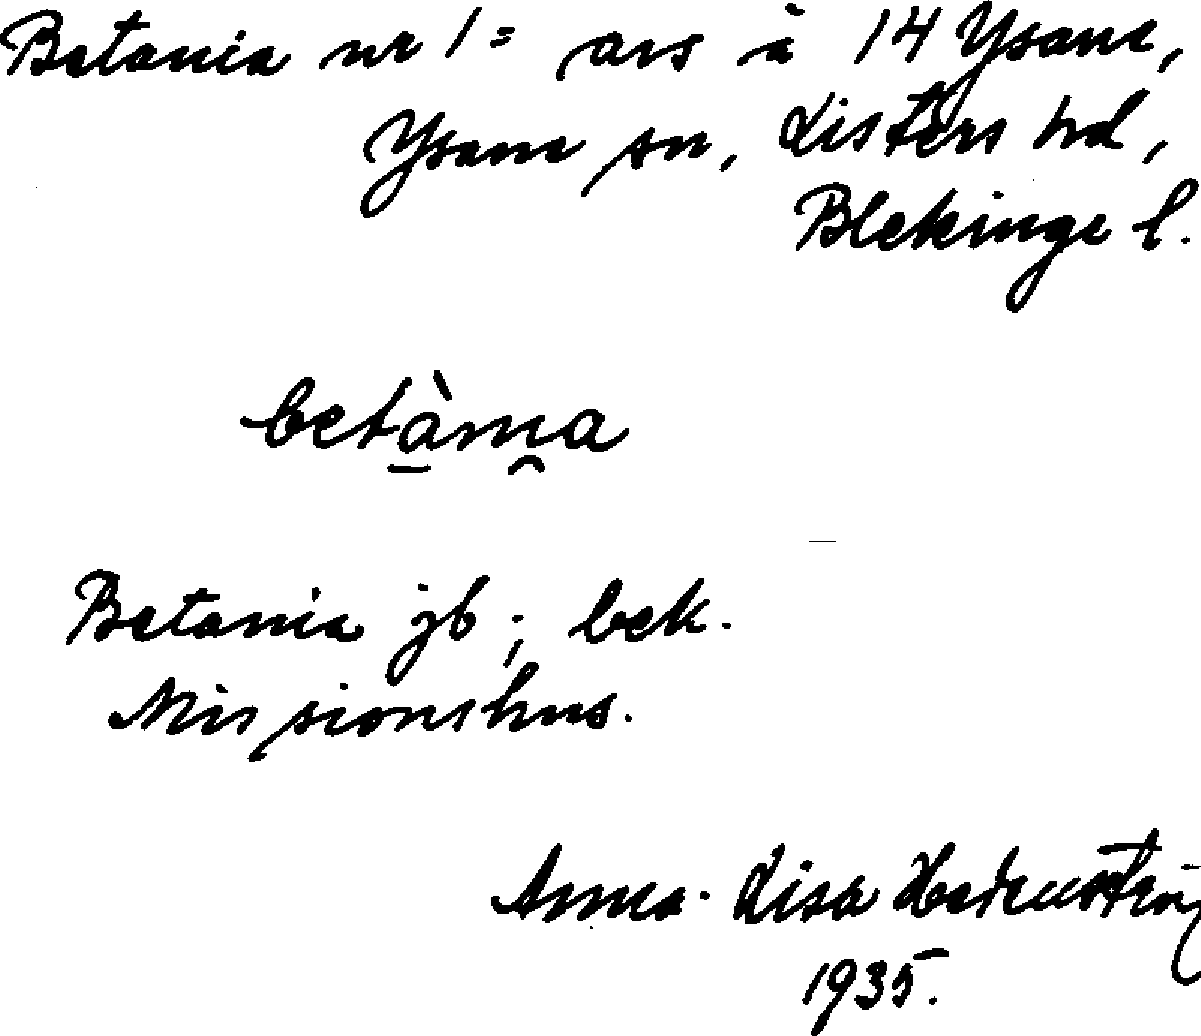 Betania nr 1= avs å 14 Ysane,
Ysane sn, Listers hd,
Blekinge l.
betàni̯a
Betania jb ; bek.
Missionshus.
Anna-Lisa
1935.